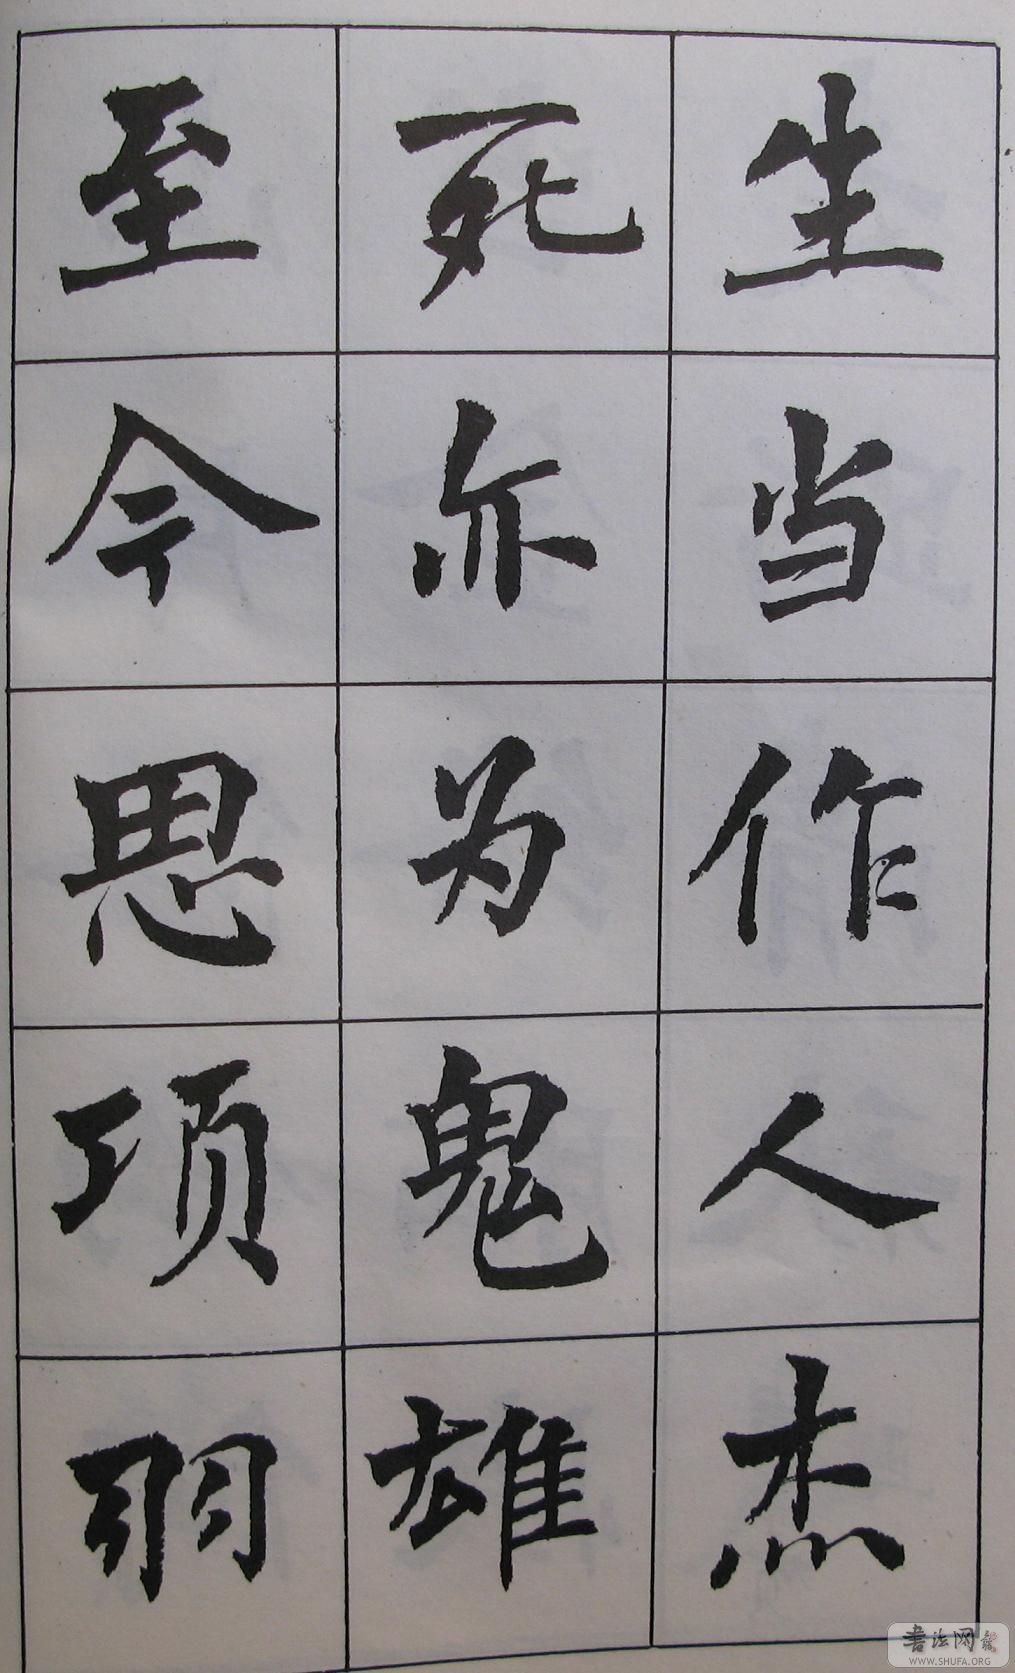 生当作人杰
死亦为鬼雄
至今思项羽
书法网
WWW.SHUFA.ORG